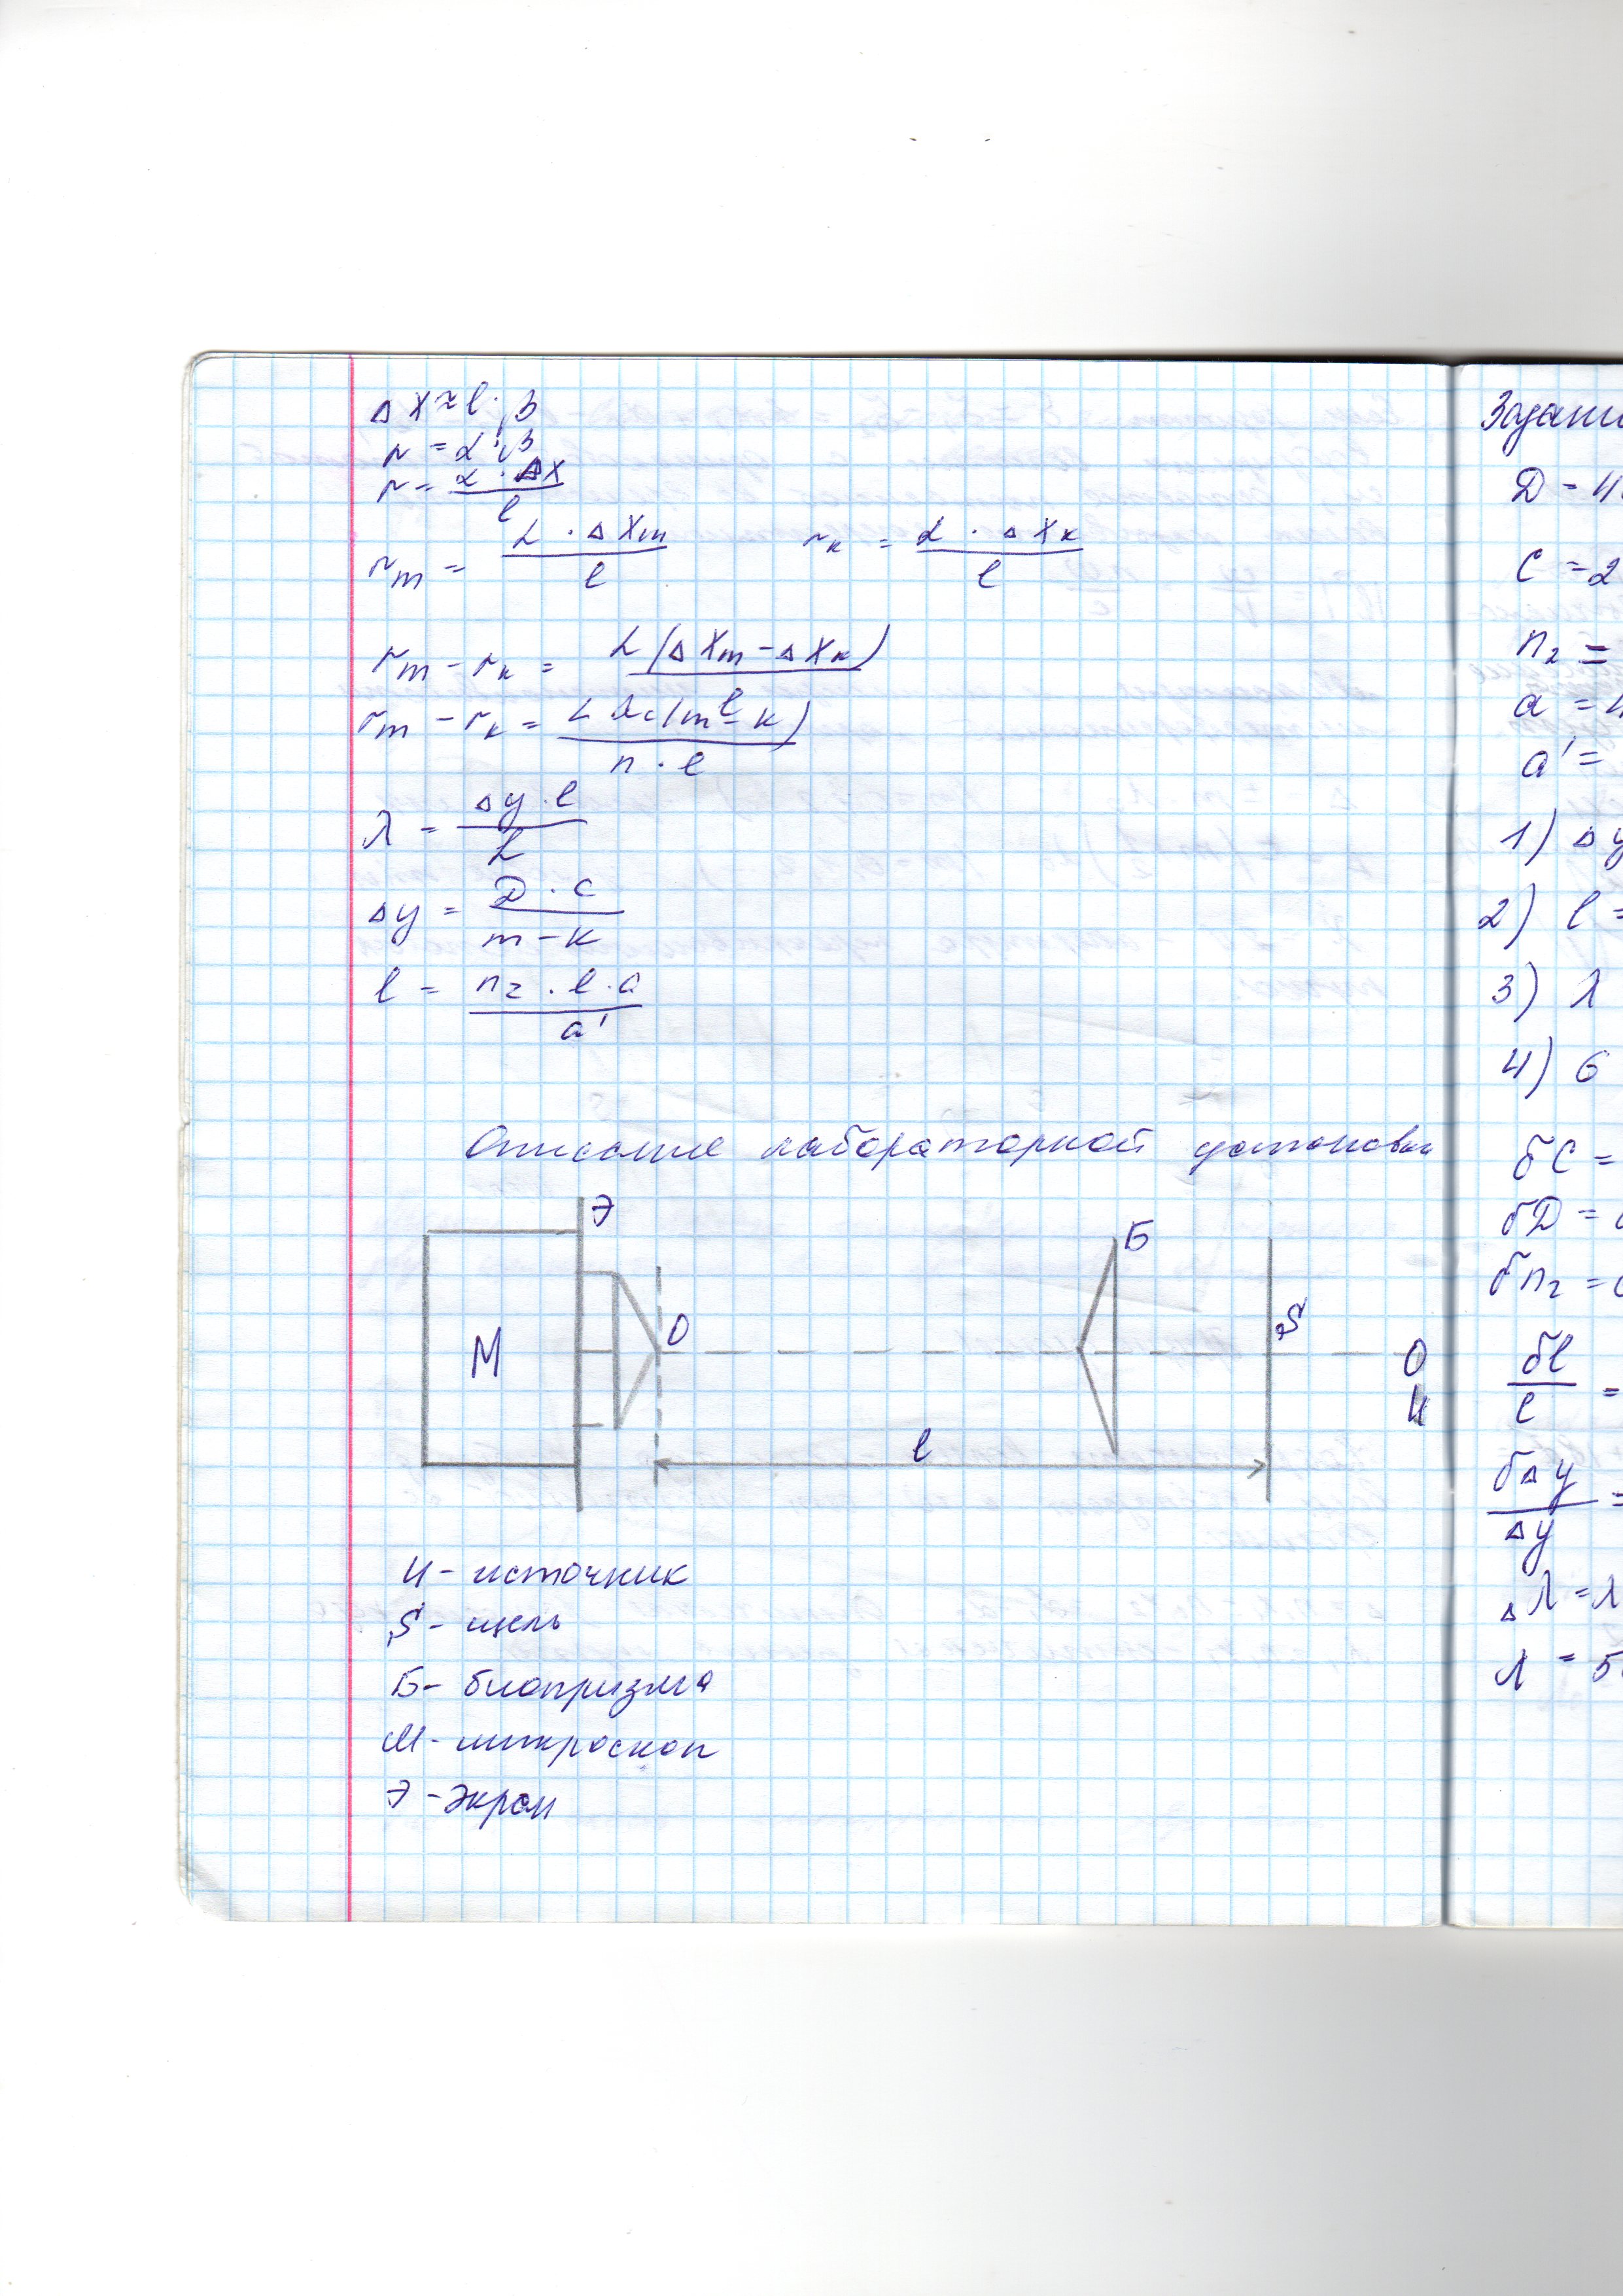 Δx ≈ l·β
r = L·β
r = L · Δx / l
r_m = L · Δx_m / l    r_k = L · Δx_k / l
r_m - r_k = L (Δx_m - Δx_k) / l
r_m - r_k = L λ_0 (m - k) / n · l
λ = Δy · l / L
Δy = D · c / m - k
l = n_2 · l · a / a'
Описание лабораторной установки
Э
Б
M
O
S
O
И
l
И - источник
S - щель
Б - биопризма
М - микроскоп
Э - экран
Задани
D - 4
C = 2
n_2 =
a = 4
a' =
1) Δy
2) l =
3) λ
4) б
δC =
δD =
δn_2 =
δl / l =
δΔy / Δy =
Δλ = λ
λ = 5